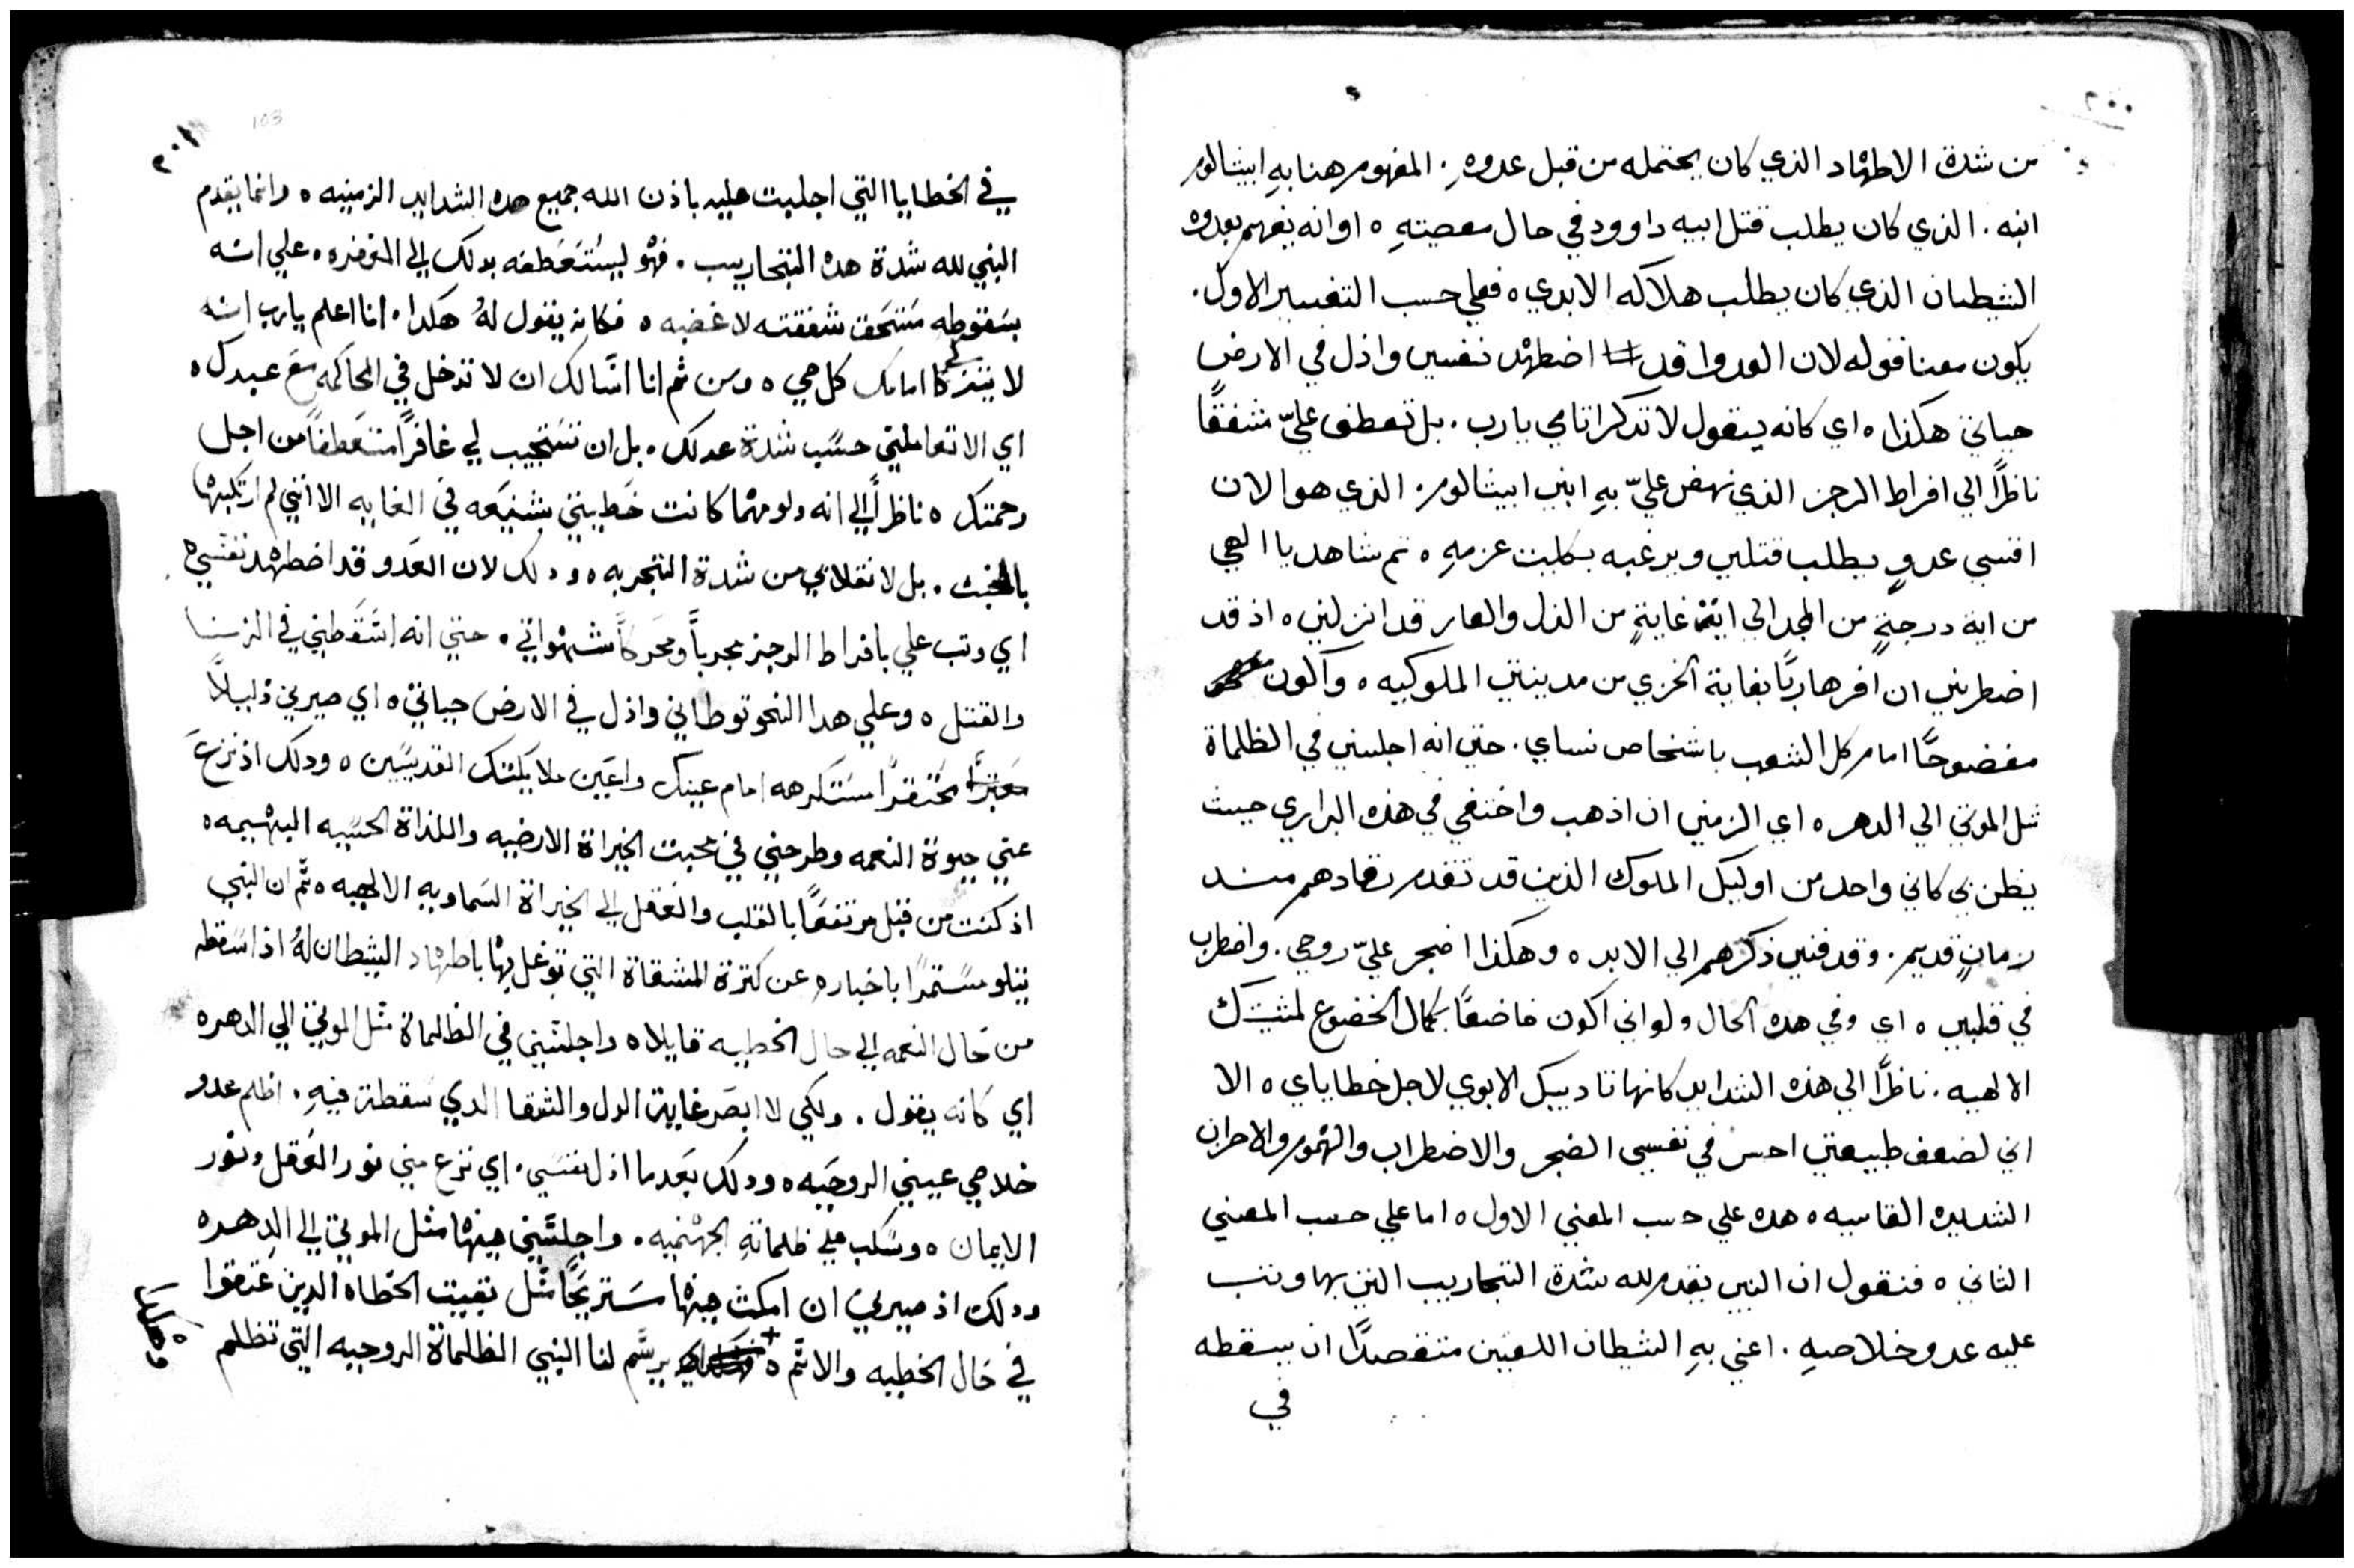 ٢٠٠
من شدة الاطهاد الذي كان يحتمله من قبل عدوهِ . المفهوم هنا بهِ ابيشالوم
ابنه . الذي كان يطلب قتل ابيه داوود في حال معصيتهِ ه او انه يفهم بعدوه
الشيطان الذي كان يطلب هلاكه الابدي ه فعلي حسب التفسير الاول .
يكون معنا قوله لان العدوا قد اضطهد نفسي واذل في الارض
حياتي هكذا ه اي كانه يقول لا تذكر اثامي يارب . بل تعطف عليّ مشفقًا
ناظرًا الي افراط الرجز الذي نهض عليّ بهِ ابني ابيشالوم . الذي هو الان
اقسي عدوٍ يطلب قتلي ويرغبه بكليت عزمهِ ه ثم شاهد يا الهي
من اية درجةٍ من المجد الي ايّة غايةٍ من الذل والعار قد انزلني ه اذ قد
اضطرني ان افر هاربًا بغاية الخزي من مدينتي الملوكيه ه واكون
مفضوحًا امام كل الشعب باشخاص نساي . حتي انه اجلسني في الظلماة
مثل الموتي الي الدهر ه اي الزمني ان اذهب واختفي في هذه البراري حيث
يظن بي كاني واحد من اوليك الملوك الذين قد تقدم رقادهم منذ
زمانٍ قديم . وقد فني ذكرهم الي الابد ه وهكذا اضجر عليّ روحي . واضطرب
في قلبي ه اي وفي هده الحال ولو اني اكون خاضعًا بكمال الخضوع لمشيتك
الالهيه . ناظرًا الي هذه الشدايد كانها تاديبك الابوي لاجل خطاياي ه الا
اني لضعف طبيعتي احس في نفسي الضجر والاضطراب والهموم والاحزان
الشديده القاسيه ه هده علي حسب المعني الاول ه اما علي حسب المعني
الثاني ه فنقول ان النبي يقدم لله شدة التجاريب التي بها وتب
عليه عدو خلاصهِ . اعني بهِ الشيطان اللعين متقصدًا ان يسقطه
في
٢٠١
103
في الخطايا التي اجلبت عليه باذن الله جميع هده الشدايد الزمنيه ه وانما يقدم
النبي لله شدة هده التجاريب . فهو ليستعطفه بدلك الي المغفره ه علي انه
بسقوطه مستحق شفقته لا غضبه ه فكانه يقول لهُ هكدا . انا اعلم يارب انه
لا يتزكا امامك كل حي ه ومن ثم انا اسالك ان لا تدخل في المحاكمه مع عبدك ه
اي الا تعاملني حسب شدة عدلك . بل ان تستجيب لي غافرًا متعطفًا من اجل
رحمتك ه ناظرًا الي انه ولو مهما كانت خطيتي شنيعه في الغايه الا انني لم ارتكبها
بالخبث . بل لانقلابي من شدة التجربه ه ودلك لان العدو قد اضطهد نفسي ه
اي وتب علي بافراط الرجز مجربًا ومحركًا شهواتي . حتي انه اسقطني في الزنا
والقتل ه وعلي هدا النحو توطاني واذل في الارض حياتي ه اي صيرني ذليلاً
محتقرًا مستكرهه امام عينيك واعين ملايكتك القديسين ه ودلك اذ نزع
عني حيوة النعمه وطرحني في محبت الخيراة الارضيه واللذاة الحسيه البهيميه ه
اذ كنت من قبل مرتفعًا بالقلب والعقل الي الخيراة السماويه الالهيه ه ثم ان النبي
يتلو مستمرًا باخباره عن كترة المشقاة التي توغل بها باطهاد الشيطان لهُ اذ اسقطه
من حال النعمه الي حال الخطيه قايلا ه واجلسني في الظلماة مثل الموتي الي الدهر ه
اي كانه يقول . ولكي لا ابصر غاية الدل والشقا الدي سقطة فيهِ . اظلم عدو
خلاصي عيني الروحيه ه ودلك بعدما اذل نفسي . اي نزع مني نور العقل ونور
الايمان ه وسكب علي ظلماته الجهنميه . واجلسني فيها مثل الموتي الي الدهر ه
ودلك اذ صيرني ان امكث فيها مستريحًا مثل بقيت الخطاه الدين عتقوا
في حال الخطيه والاثم ه يرسم لنا النبي الظلماة الروحيه التي تظلم
وهكدا